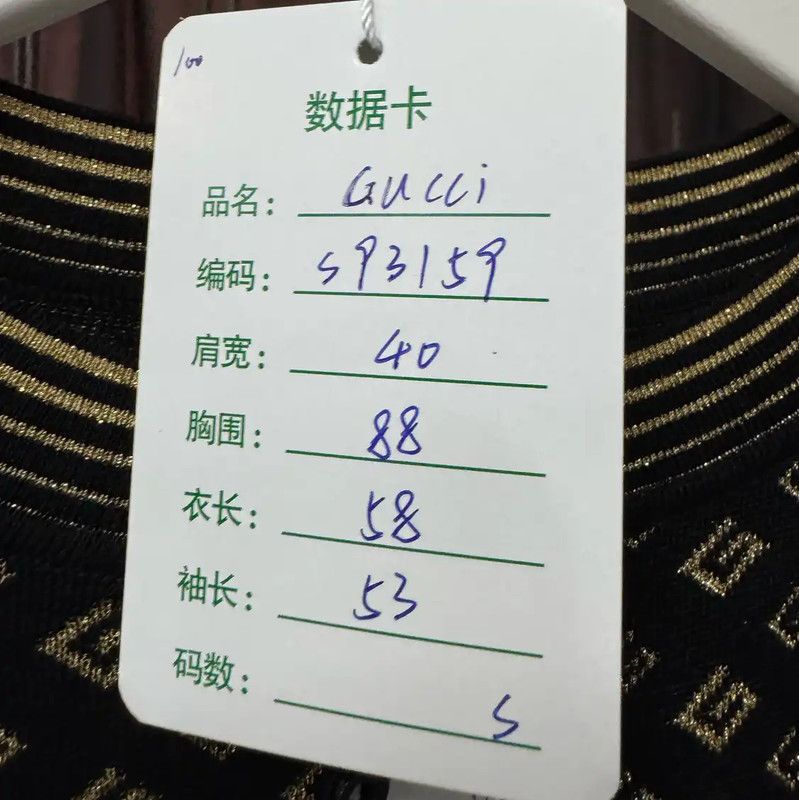 100
数据卡
品名: GUCCi
编码: S93159
肩宽: 40
胸围: 88
衣长: 58
袖长: 53
码数: S